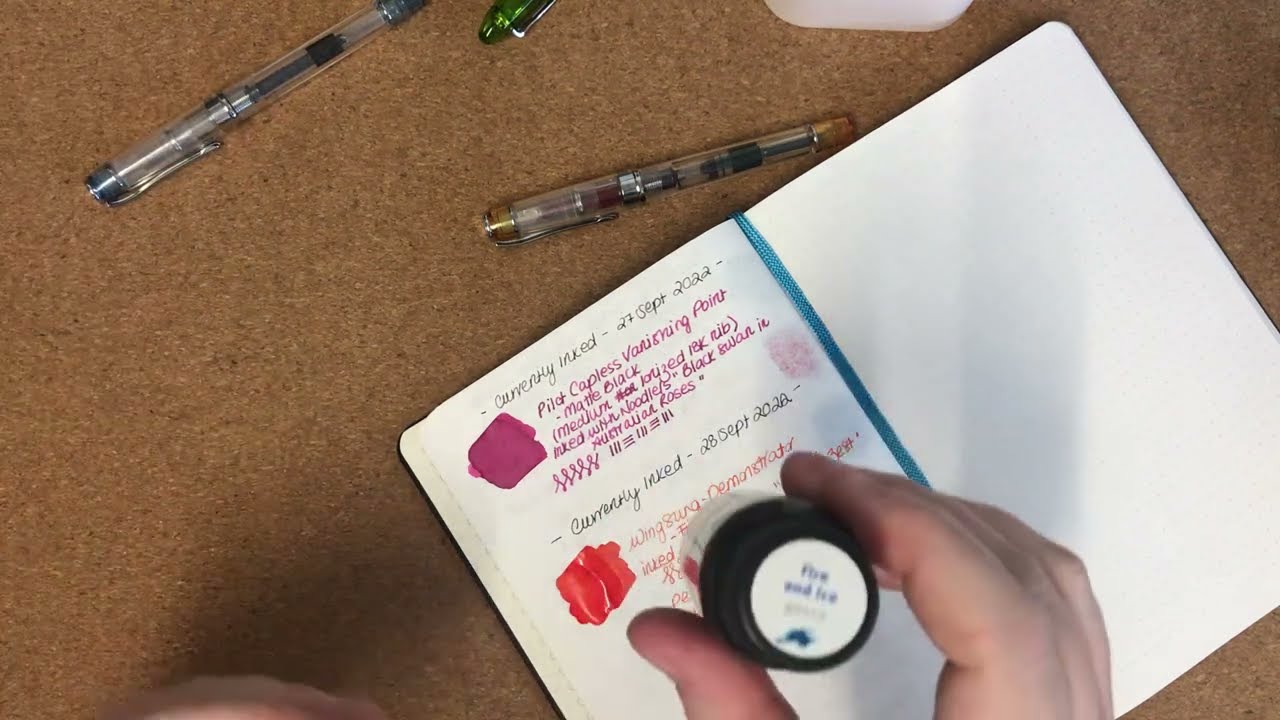 - Currently Inked - 27 Sept 2022 -
Pilot Capless Vanishing Point
- Matte Black
(medium ionized 18K nib)
inked with Noodler's "Black Swan in
Australian Roses"
- Currently Inked - 28 Sept 2022 -
Wingsung - Demonstrator
Best"
inked
Fire
and Ice